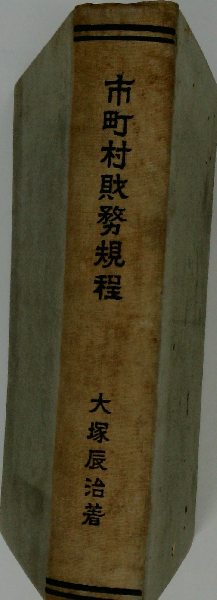 市町村財務規程
大塚辰治著